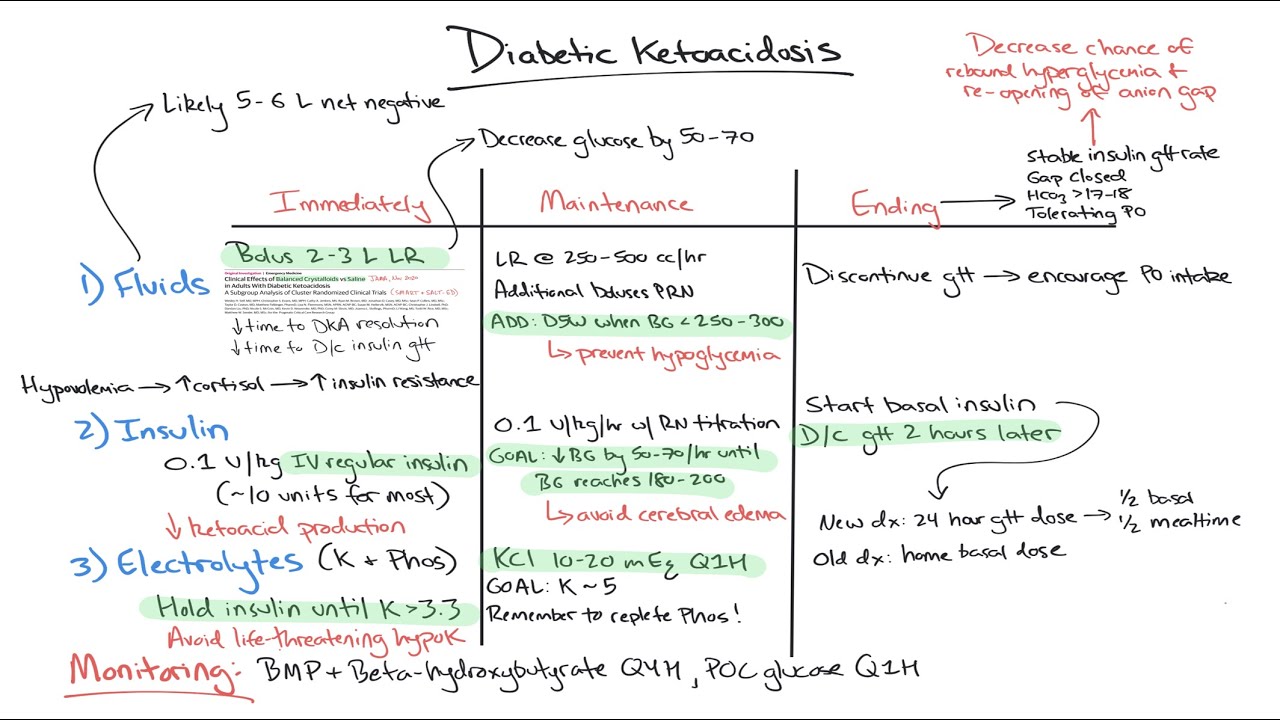 Diabetic Ketoacidosis
Decrease chance of
rebound hyperglycemia +
re-opening of anion gap
Likely 5-6 L net negative
Decrease glucose by 50-70
Stable insulin gtt rate
Gap closed
HCO3 >17-18
Tolerating PO
Immediately
Maintenance
Ending
1) Fluids
Bolus 2-3 L LR
Original Investigation | Emergency Medicine
Clinical Effects of Balanced Crystalloids vs Saline
JAMA, Nov 2020
in Adults With Diabetic Ketoacidosis
A Subgroup Analysis of Cluster Randomized Clinical Trials
(SMART + SALT-ED)
↓time to DKA resolution
↓time to D/c insulin gtt
LR @ 250-500 cc/hr
Additional boluses PRN
ADD: D5W when BG < 250-300
↳ prevent hypoglycemia
Discontinue gtt → encourage PO intake
Hypovolemia → ↑cortisol → ↑ insulin resistance
2) Insulin
0.1 U/kg IV regular insulin
(~10 units for most)
↓ ketoacid production
0.1 U/kg/hr w/ RN titration
GOAL: ↓BG by 50-70/hr until
BG reaches 180-200
↳ avoid cerebral edema
Start basal insulin
D/c gtt 2 hours later
New dx: 24 hour gtt dose → 1/2 basal
1/2 mealtime
Old dx: home basal dose
3) Electrolytes (K + Phos)
Hold insulin until K > 3.3
Avoid life-threatening hypoK
KCl 10-20 mEq Q1H
GOAL: K ~ 5
Remember to replete Phos!
Monitoring: BMP + Beta-hydroxybutyrate Q4H, POC glucose Q1H